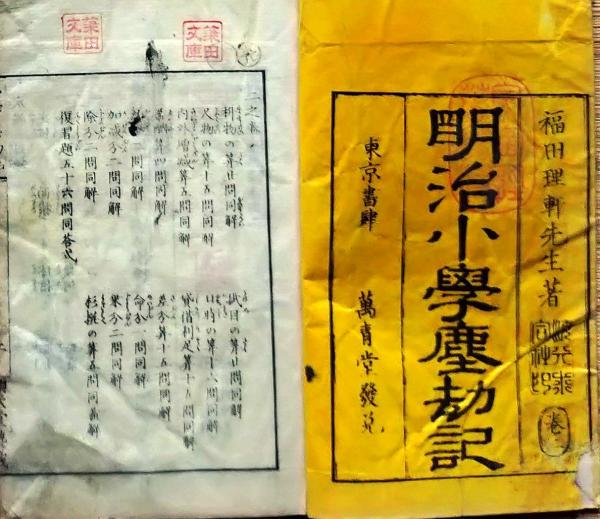 福田理軒先生著
卷二
明治小學塵劫記
東京書肆
萬青堂發兌
築田文庫
築田文庫
六
二之卷
斜物の算廿問同解
尺物の算十五問同解
内外増減算五問同解
算四問同解
問同解
加減分二問同解
除分二問同解
復習題五十六問同答式
試目の算廿問同解
日時の算十六問同解
貸借利足算十五問同解
差分算十五問同解
命分一問同解
乗分二問同解
杉撰の算五問同解